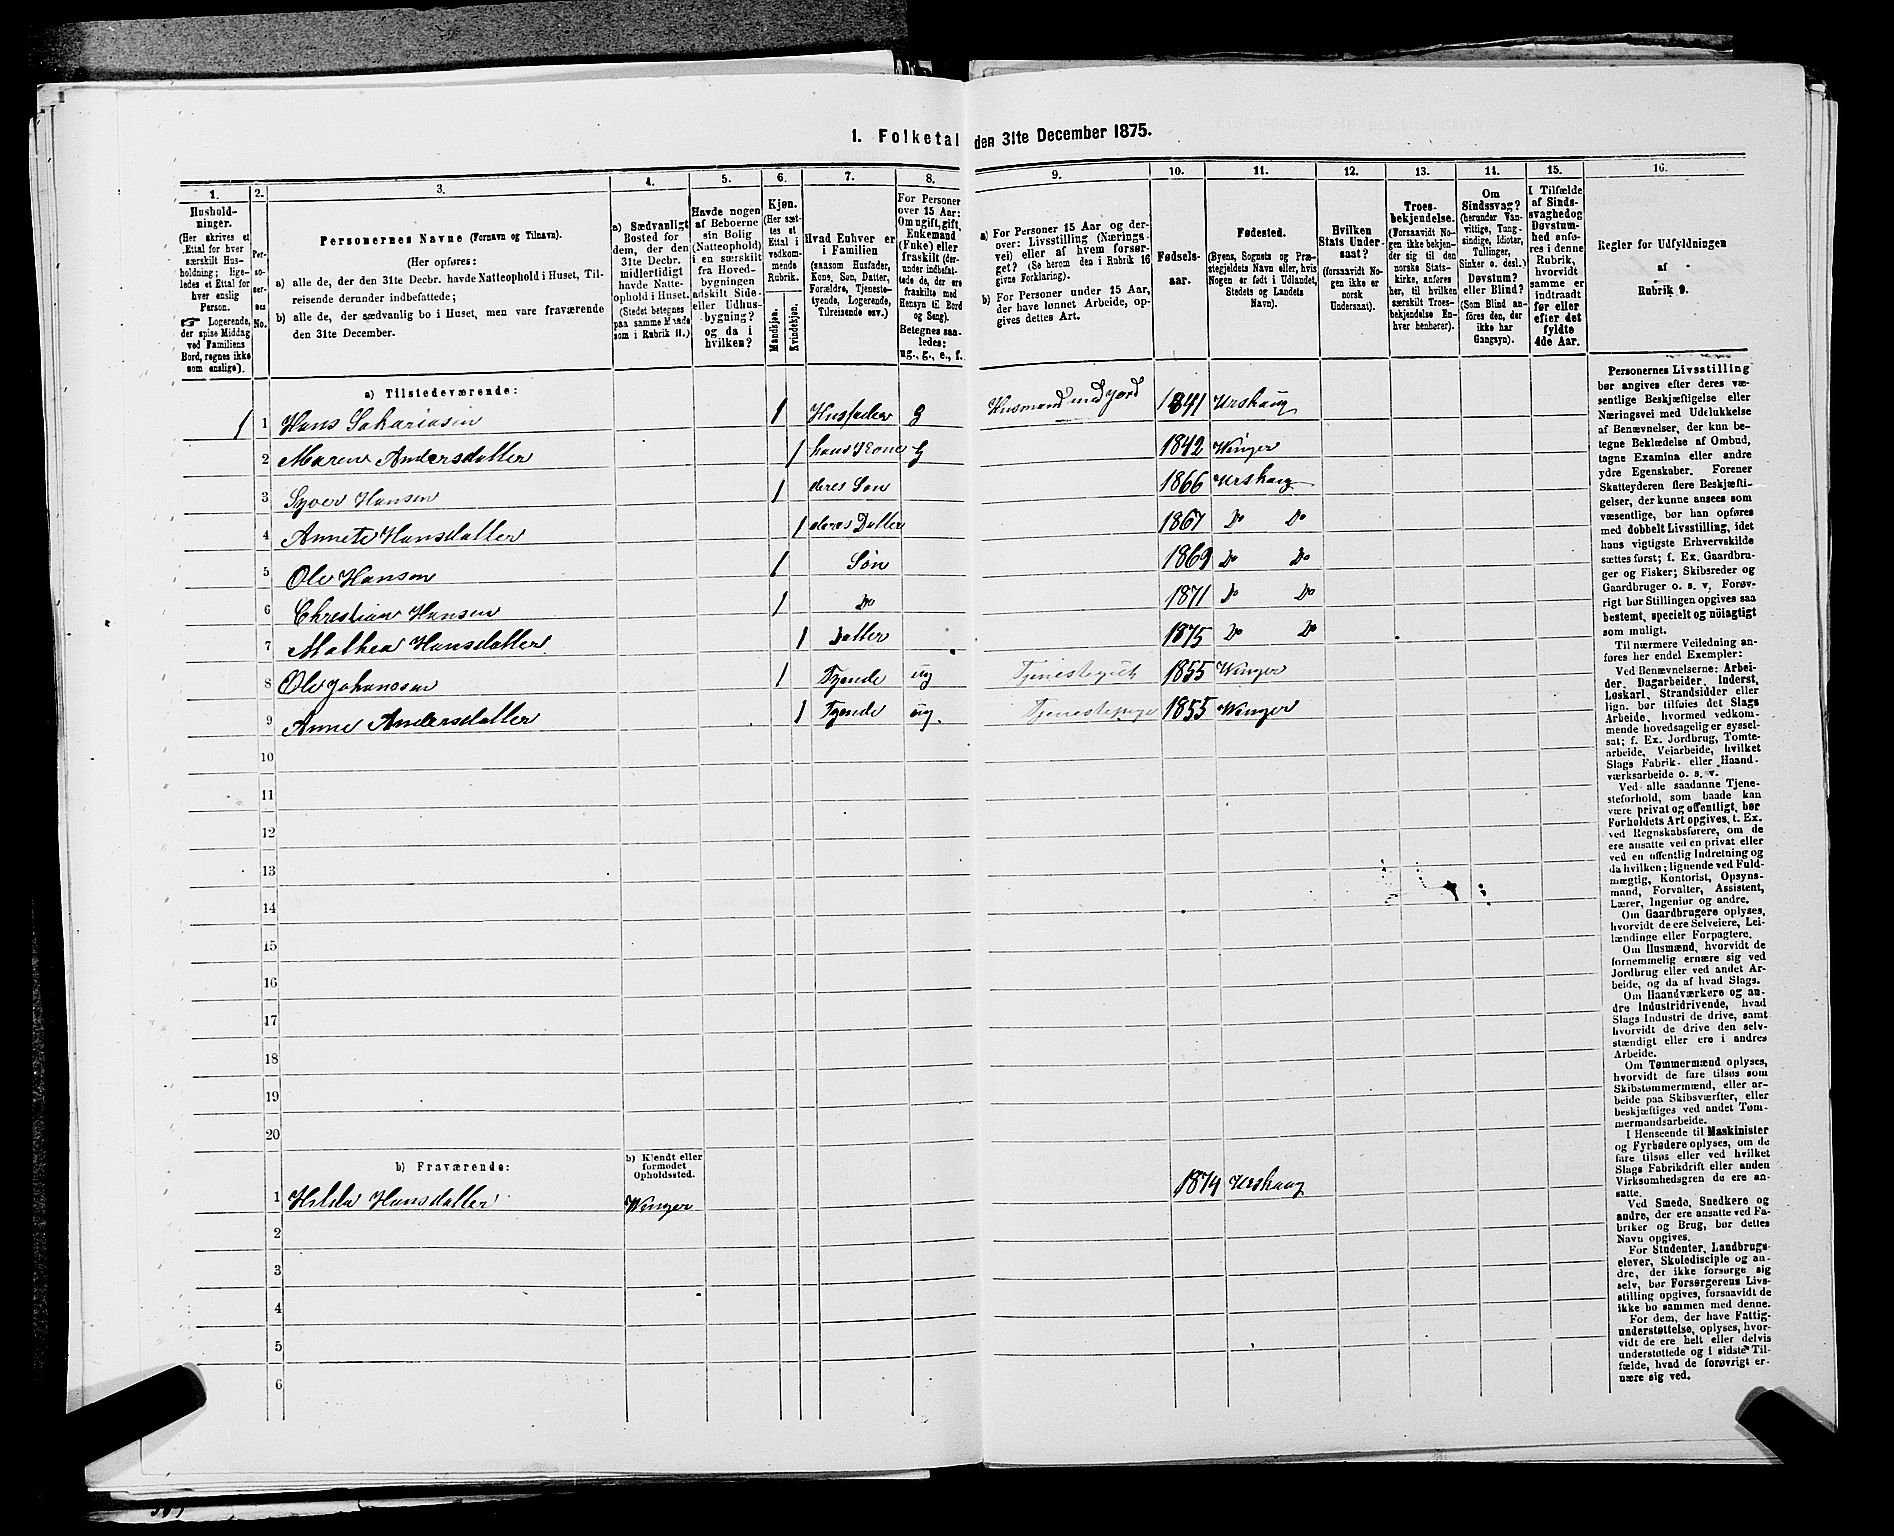 1. Folketal den 31te December 1875.
1. 2. 3. 4. 5. 6. 7. 8. 9. 10. 11. 12. 13. 14. 15. 16.
Hushold-
ninger.
(Her skrives et
Ettal for hver
særskilt Hus-
holdning; lige-
ledes et Ettal for
hver enslig
Person.
☞ Logerende,
der spise Middag
ved Familiens
Bord, regnes ikke
som enslige).
Per-
so-
ner-
nes
No.
Personernes Navne (Fornavn og Tilnavn).
(Her opføres:
a) alle de, der den 31te Decbr. havde Natteophold i Huset, Til-
reisende derunder indbefattede;
b) alle de, der sædvanlig bo i Huset, men vare fraværende
den 31te December.
a) Sædvanligt
Bosted for
dem, der den
31te Decbr.
midlertidigt
havde Natte-
ophold i Huset.
(Stedet betegnes
paa samme Maade
som i Rubrik 11.)
Havde nogen
af Beboerne
sin Bolig
(Natteophold)
i en særskilt
fra Hoved-
bygningen
adskilt Side-
eller Udhus-
bygning?
og da i
hvilken?
Kjøn.
(Her sæt-
tes et
Ettal i
vedkom-
mende
Rubrik.
Mandkjøn.
Kvindekjøn.
Hvad Enhver er
i Familien
(saasom Husfader,
Kone, Søn, Datter,
Forældre, Tjeneste-
tyende, Logerende,
Tilreisende osv.)
For Personer
over 15 Aar:
Om ugift, gift,
Enkemand
(Enke) eller
fraskilt (der-
under indbefat-
tede de, der ere
fraskilte med
Hensyn til Bord
og Seng).
Betegnes saa-
ledes:
ug., g., e., f.
a) For Personer 15 Aar og der-
over: Livsstilling (Nærings-
vei) eller af hvem forsør-
get? (Se herom den i Rubrik 16
givne Forklaring).
b) For Personer under 15 Aar,
der have lønnet Arbeide, op-
gives dettes Art.
Fødsels-
aar.
Fødested.
(Byens, Sognets og Præ-
stegjeldets Navn eller, hvis
Nogen er født i Udlandet,
Stedets og Landets
Navn).
Hvilken
Stats Under-
saat?
(forsaavidt No-
gen ikke er
norsk
Undersaat).
Troes-
bekjendelse.
(Forsaavidt No-
gen ikke bekjen-
der sig til den
norske Stats-
kirke, anføres
her, til hvilken
særskilt Troes-
bekjendelse En-
hver henhører).
Om
Sindssvag?
(herunder Van-
vittige, Tung-
sindige, Idioter,
Tullinger,
Sinker o. desl.)
Døvstum?
eller Blind?
(Som Blind an-
føres den, der
ikke har
Gangsyn).
I Tilfælde
af Sinds-
svaghed og
Døvstum-
hed anfø-
res i denne
Rubrik,
hvorvidt
samme er
indtraadt
før eller
efter det
fyldte
4de Aar.
Regler for Udfyldningen
af
Rubrik 9.
a) Tilstedeværende:
1 1 Hans Sakariasen 1 Husfader g Husmand med Jord 1841 Urskaug
2 Maren Andersdatter 1 hans Kone g 1842 Winger
3 Syver Hansen 1 deres Søn 1866 Urskaug
4 Annete Hansdatter 1 deres Datter 1867 Do Do
5 Ole Hansen 1 Søn 1869 Do Do
6 Christian Hansen 1 Do 1871 Do Do
7 Mathea Hansdatter 1 Datter 1875 Do Do
8 Ole Johansen 1 Tyende ug Tjenestegut 1855 Winger
9 Anne Andersdatter 1 Tyende ug. Tjenestepige 1855 Winger
10
11
12
13
14
15
16
17
18
19
20
b) Fraværende:
b) Kjendt eller
formodet
Opholdssted.
1 Hilda Hansdatter Winger 1874 Urskaug
2
3
4
5
6
Personernes Livsstilling
bør angives efter deres væ-
sentlige Beskjæftigelse eller
Næringsvei med Udelukkelse
af Benævnelser, der kun be-
tegne Beklædelse af Ombud,
tagne Examina eller andre
ydre Egenskaber. Forener
Skatteyderen flere Beskjæfti-
gelser, der kunne ansees som
væsentlige, bør han opføres
med dobbelt Livsstilling, idet
hans vigtigste Erhvervskilde
sættes først; f. Ex. Gaardbru-
ger og Fisker; Skibsreder og
Gaardbruger o. s. v. Forøv-
rigt bør Stillingen opgives saa
bestemt, specielt og nøiagtigt
som muligt.
Til nærmere Veiledning an-
føres her endel Exempler:
Ved Benævnelserne: Arbei-
der, Dagarbeider, Inderst,
Løskarl, Strandsidder eller
lign. bør tilføies det Slags
Arbeide, hvormed vedkom-
mende hovedsagelig er syssel-
sat; f. Ex. Jordbrug, Tomte-
arbeide, Veiarbeide, hvilket
Slags Fabrik- eller Haand-
værksarbeide o. s. v.
Ved alle saadanne Tjene-
steforhold, som baade kan
være privat og offentligt, bør
Forholdets Art opgives, t. Ex.
ved Regnskabsførere, om de
ere ansatte ved en privat eller
ved en offentlig Indretning og
da hvilken; lignende ved Fuld-
mægtig, Kontorist, Opsyns-
mand, Forvalter, Assistent,
Lærer, Ingeniør og andre.
Om Gaardbrugere oplyses,
hvorvidt de ere Selveiere, Lei-
lændinge eller Forpagtere.
Om Husmænd, hvorvidt de
fornemmelig ernære sig ved
Jordbrug eller ved andet Ar-
beide, og da af hvad Slags.
Om Haandværkere og an-
dre Industridrivende, hvad
Slags Industri de drive, samt
hvorvidt de drive den selv-
stændigt eller ere i andres
Arbeide.
Om Tømmermænd oplyses,
hvorvidt de fare tilsøs som
Skibstømmermænd, eller ar-
beide paa Skibsværfter, eller
beskjæftiges ved andet Tøm-
mermandsarbeide.
I Henseende til Maskinister
og Fyrbødere oplyses, om de
fare tilsøs eller ved hvilket
Slags Fabrikdrift eller anden
Virksomhedsgren de ere an-
satte.
Ved Smede, Snedkere og
andre, der ere ansatte ved Fa-
briker og Brug, bør dettes
Navn opgives.
For Studenter, Landbrugs-
elever, Skoledisciple og an-
dre, der ikke forsørge sig
selv, bør Forsørgerens Livs-
stilling opgives, forsaavidt de
ikke bo sammen med denne.
For dem, der have Fattig-
understøttelse, oplyses, hvor-
vidt de ere helt eller delvis
understøttede og i sidste Til-
fælde, hvad de forøvrigt er-
nære sig ved.